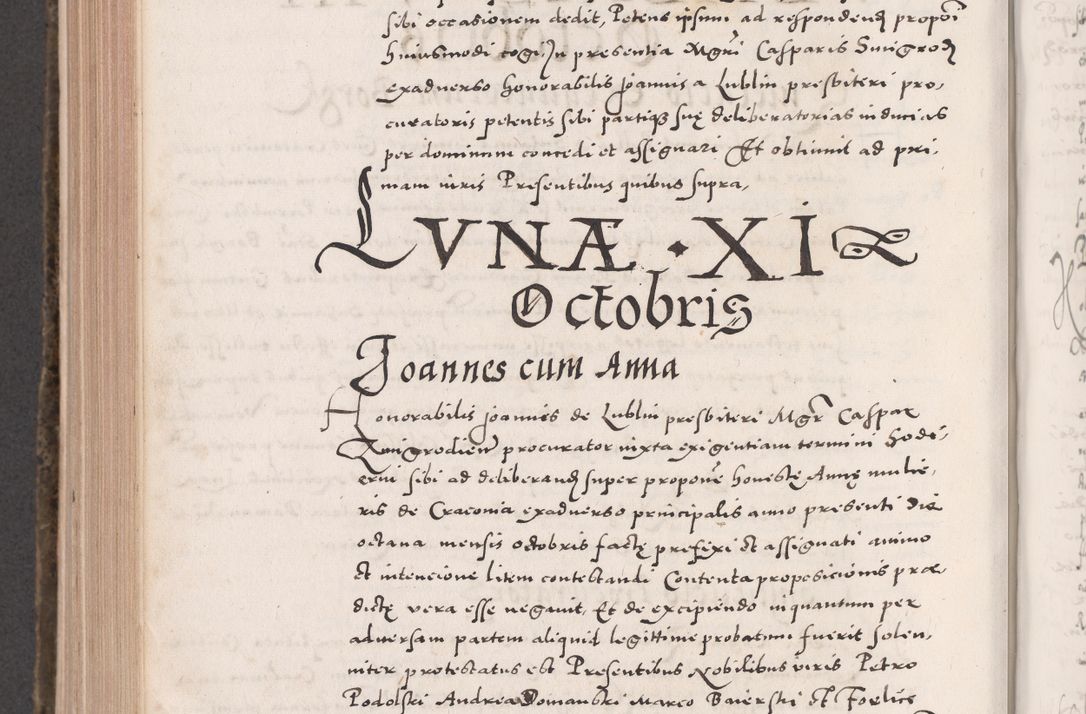 sibi occasionem dedit, Petens ipsum ad respondend propoi
huiusmodi cogi, In presentia Mgri Casparis Smigrod
exaduerso honorabilis Joannis a Lublin presbiteri pro,
curatoris petentis sibi partique sue deliberatorias inducias
per dominum concedi et assignari Et obtinuit ad pri,
mam iuris Presentibus quibus supra,
LVNÆ · XI
Octobris
Joannes cum Anna
Honorabilis Joannes de Lublin presbiteri Mgr Caspar
Zmigrodien procurator iuxta exigentiam termini hodi,
erni sibi ad deliberand super propone honeste Anne mulie,
ris de Cracouia exaduerso principalis anno presenti die
octaua mensis octobris facte prefixi et assignati animo
et intencione litem contestandi Contenta proposicionis præ,
dicte vera esse negauit, Et de excipiendo inquantum per
aduersam partem aliquid legittime probatum fuerit solen,
niter protestatus est Presentibus Nobilibus viris Petro
Podolski Andrea Domanski Marco Baierski et Foelice